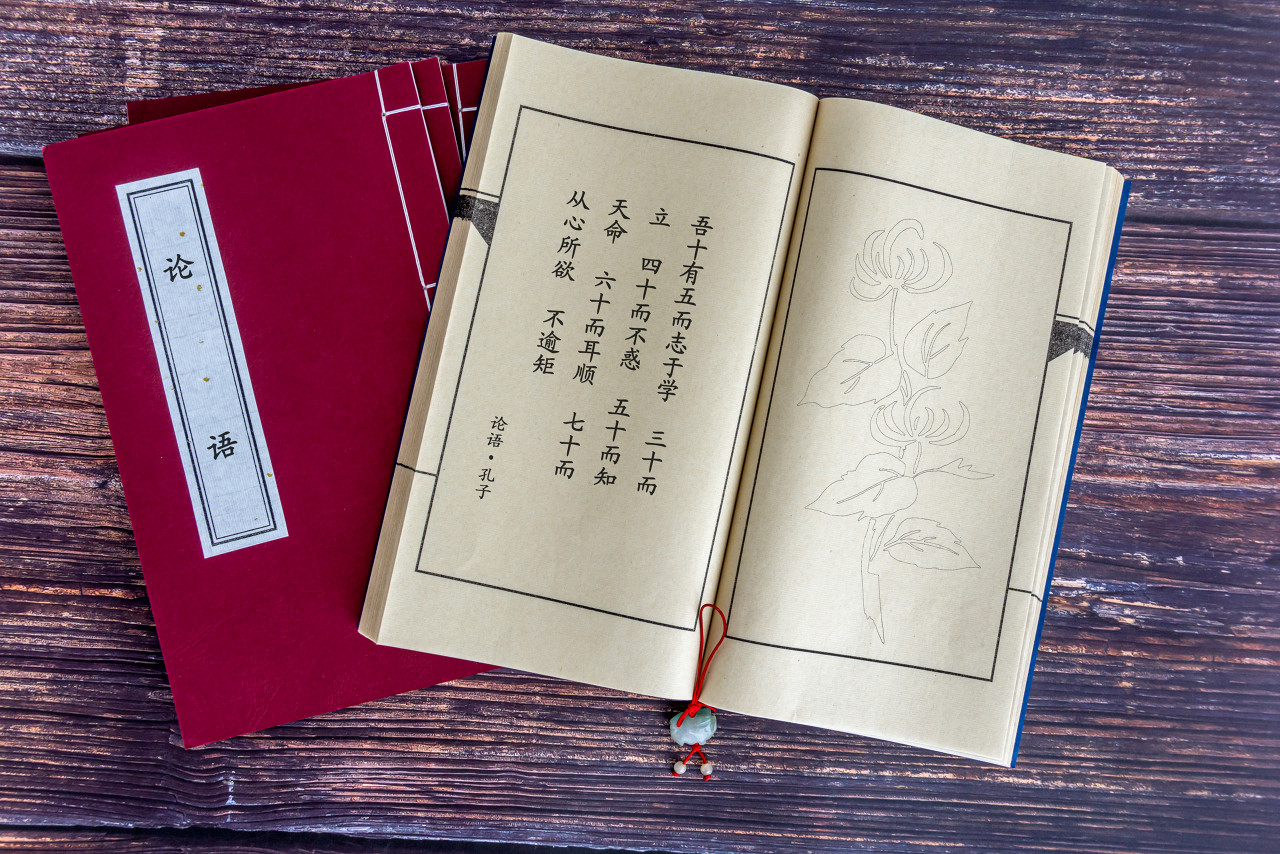 论语
吾十有五而志于学 三十而
立 四十而不惑 五十而知
天命 六十而耳顺 七十而
从心所欲 不逾矩
论语·孔子